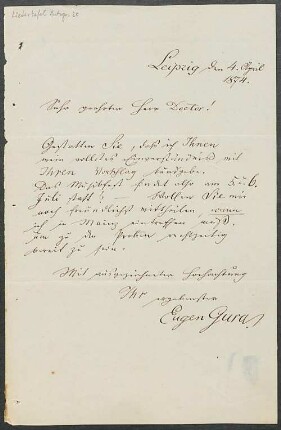 Leipzig den 4. April
1874.
Sehr geehrter Herr Doctor!
Gestatten Sie, daß ich Ihnen
mein vollstes Einverständniß mit
Ihrem Vorschlag kundgebe.
Das Musikfest findet also am 5 u 6.
Juli statt? — Wollen Sie mir
noch freundlichst mittheilen, wann
ich in Mainz eintreffen muß,
um zu den Proben rechtzeitig
bereit zu sein.
Mit ausgezeichneter Hochachtung
Ihr
ergebenster
Eugen Gura